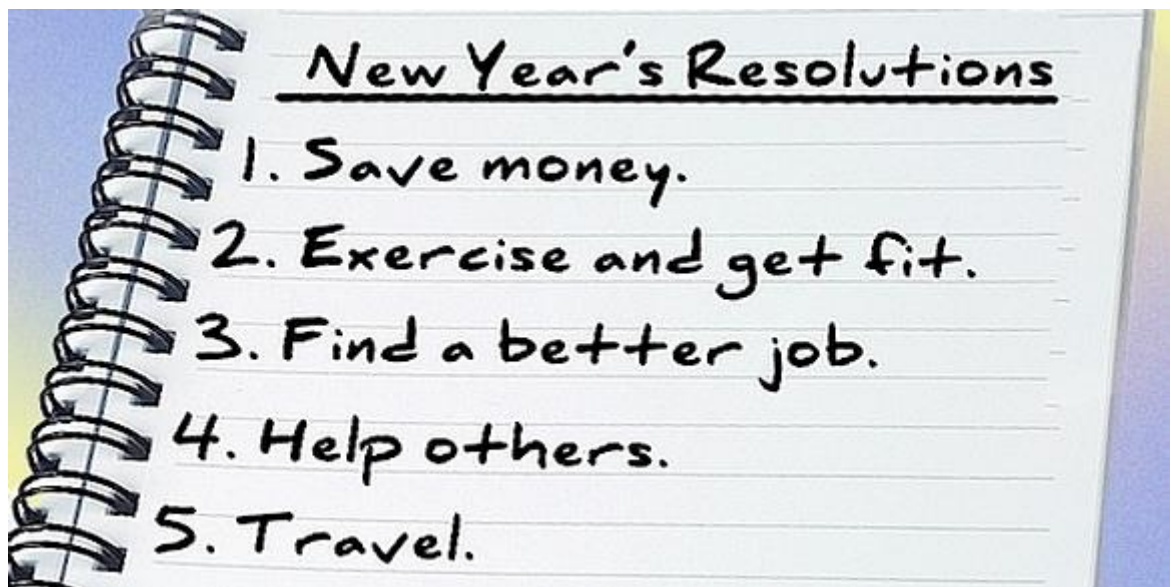 New Year's Resolutions
1. Save money.
2. Exercise and get fit.
3. Find a better job.
4. Help others.
5. Travel.